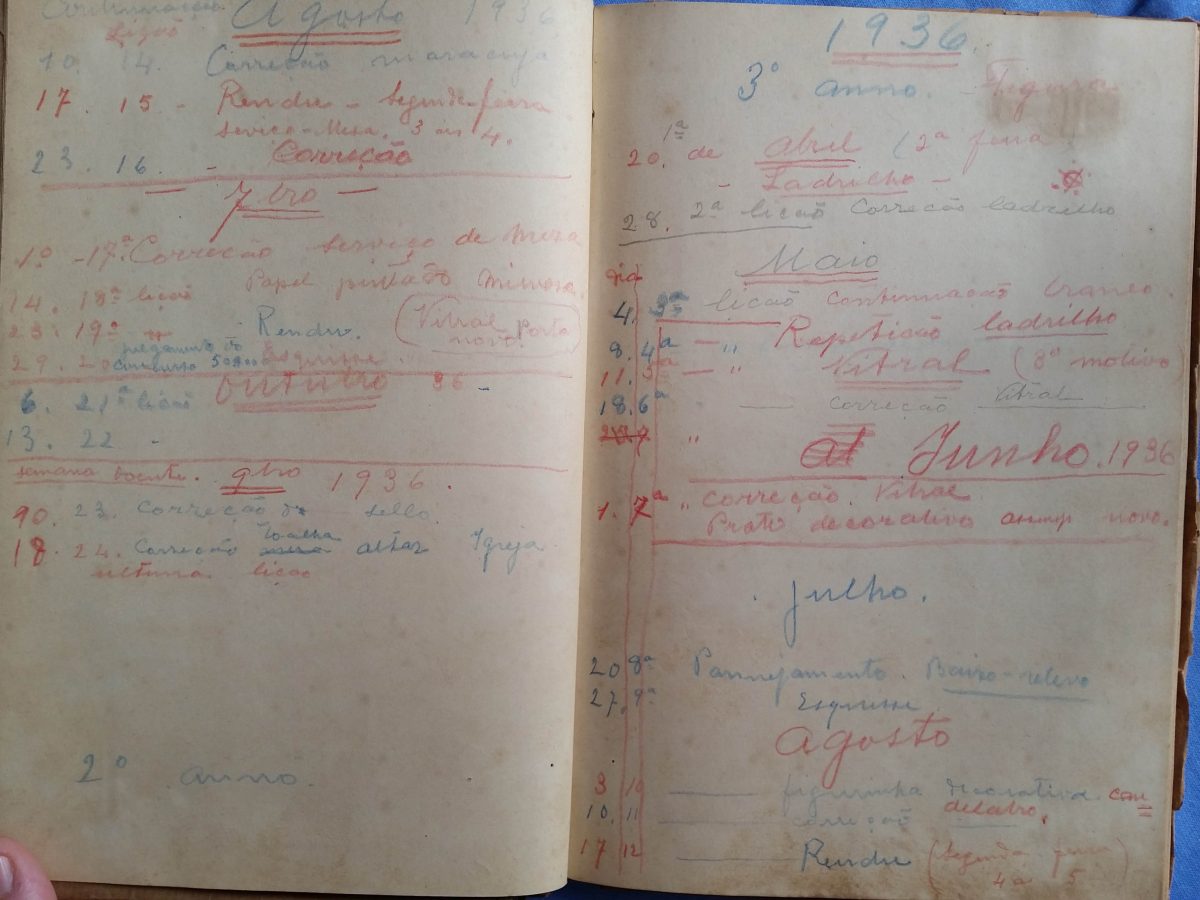 Continuação Agosto 1936
Lição
10. 14. Correção maracujá
17. 15 - Rendu - Segunda-feira
3 às 4.
23. 16. - Correção
7bro
1º - 17ª Correção serviço de mesa
Papel pintado Mimosa
14. 18ª lição
23. 19ª " Rendu. (Vitral Porto novo)
julgamento do
29. 20 concurso Esquisse
Outubro 36 -
6. 21ª lição
13. 22 -
semana docente. 9bro 1936.
10. 23. Correção do sello.
18. 24. Correção toalha altar Igreja
ultima lição
2º anno.
1936.
3º anno. - Figura
20. 1ª de Abril (2ª feira
- Ladrilho -
28. 2ª lição Correção ladrilho
Maio
dia
4. 3ª lição continuação
8. 4ª - " Repetição ladrilho
11. 5ª - " Vitral (3º motivo)
18. 6ª correção Vitral
"
Junho. 1936
1. 7ª " Correção. Vitral
Prato decorativo novo.
Julho.
20 8ª Pannejamento. Baixo-relevo
27. 9ª Esquisse
Agosto
3 10 figurinha decorativa com
10. 11 correção
17 12 Rendu (Segunda feira
4 a 5